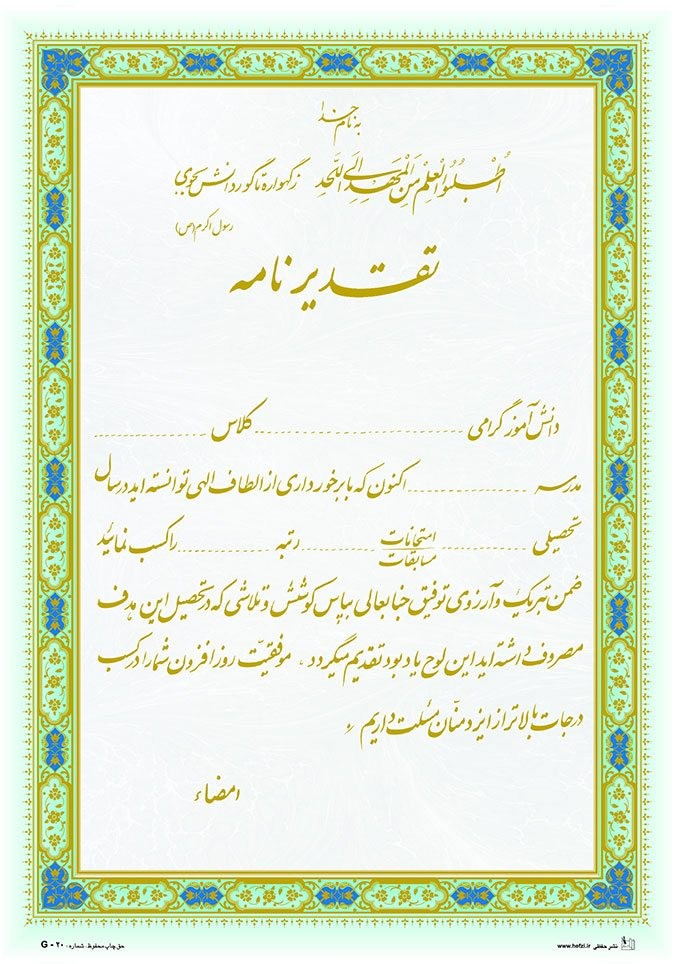 به نام خدا
اُطْلُبُوا الْعِلْمَ مِنَ الْمَهْدِ اِلَی اللَّحَدِ ز گهواره تا گور دانش بجوی
رسول اکرم (ص)
تقدیرنامه
دانش آموز گرامی .......................... کلاس ..............
مدرسه .............. اکنون که با برخورداری از الطاف الهی توانسته اید در سال
تحصیلی .............. امتحانات
مسابقات .............. رتبه .............. را کسب نمائید
ضمن تبریک و آرزوی توفیق جنابعالی بپاس کوشش و تلاشی که در تحصیل این هدف
مصروف داشته اید این لوح یادبود تقدیم میگردد ، موفقیّت روزافزون شما را در کسب
درجات بالاتر از ایزد منّان مسئلت داریم .
امضاء
نشر حفظی www.hefzi.ir
حق چاپ محفوظ. شماره: G - ۲۰